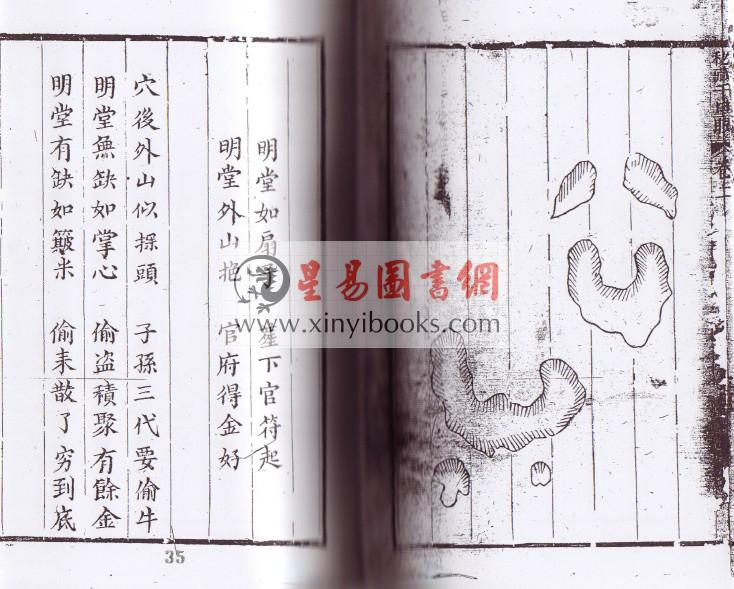 卷三
明堂如扇 下官符起
明堂外山抱 官府得金好
穴後外山似探頭 子孫三代要偷牛
明堂無缺如掌心 偷盗積聚有餘金
明堂有缺如簸米 偷来散了穷到底
35
星易圖書網
www.xinyibooks.com